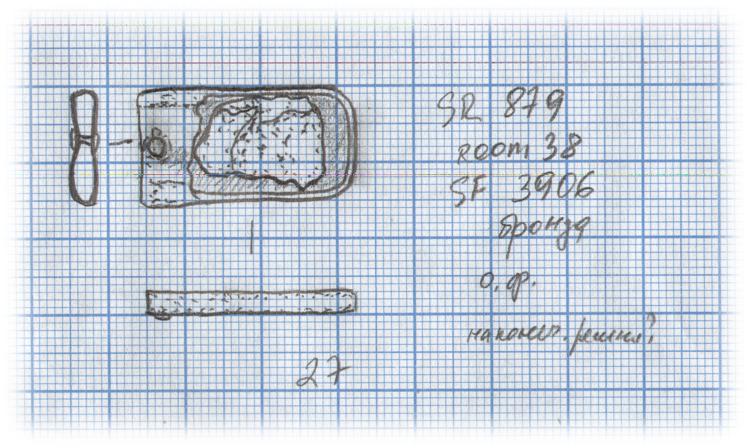 SR 879
ROOM 38
SF 3906
бронза
о. ф.
наконеч. ремня?
27